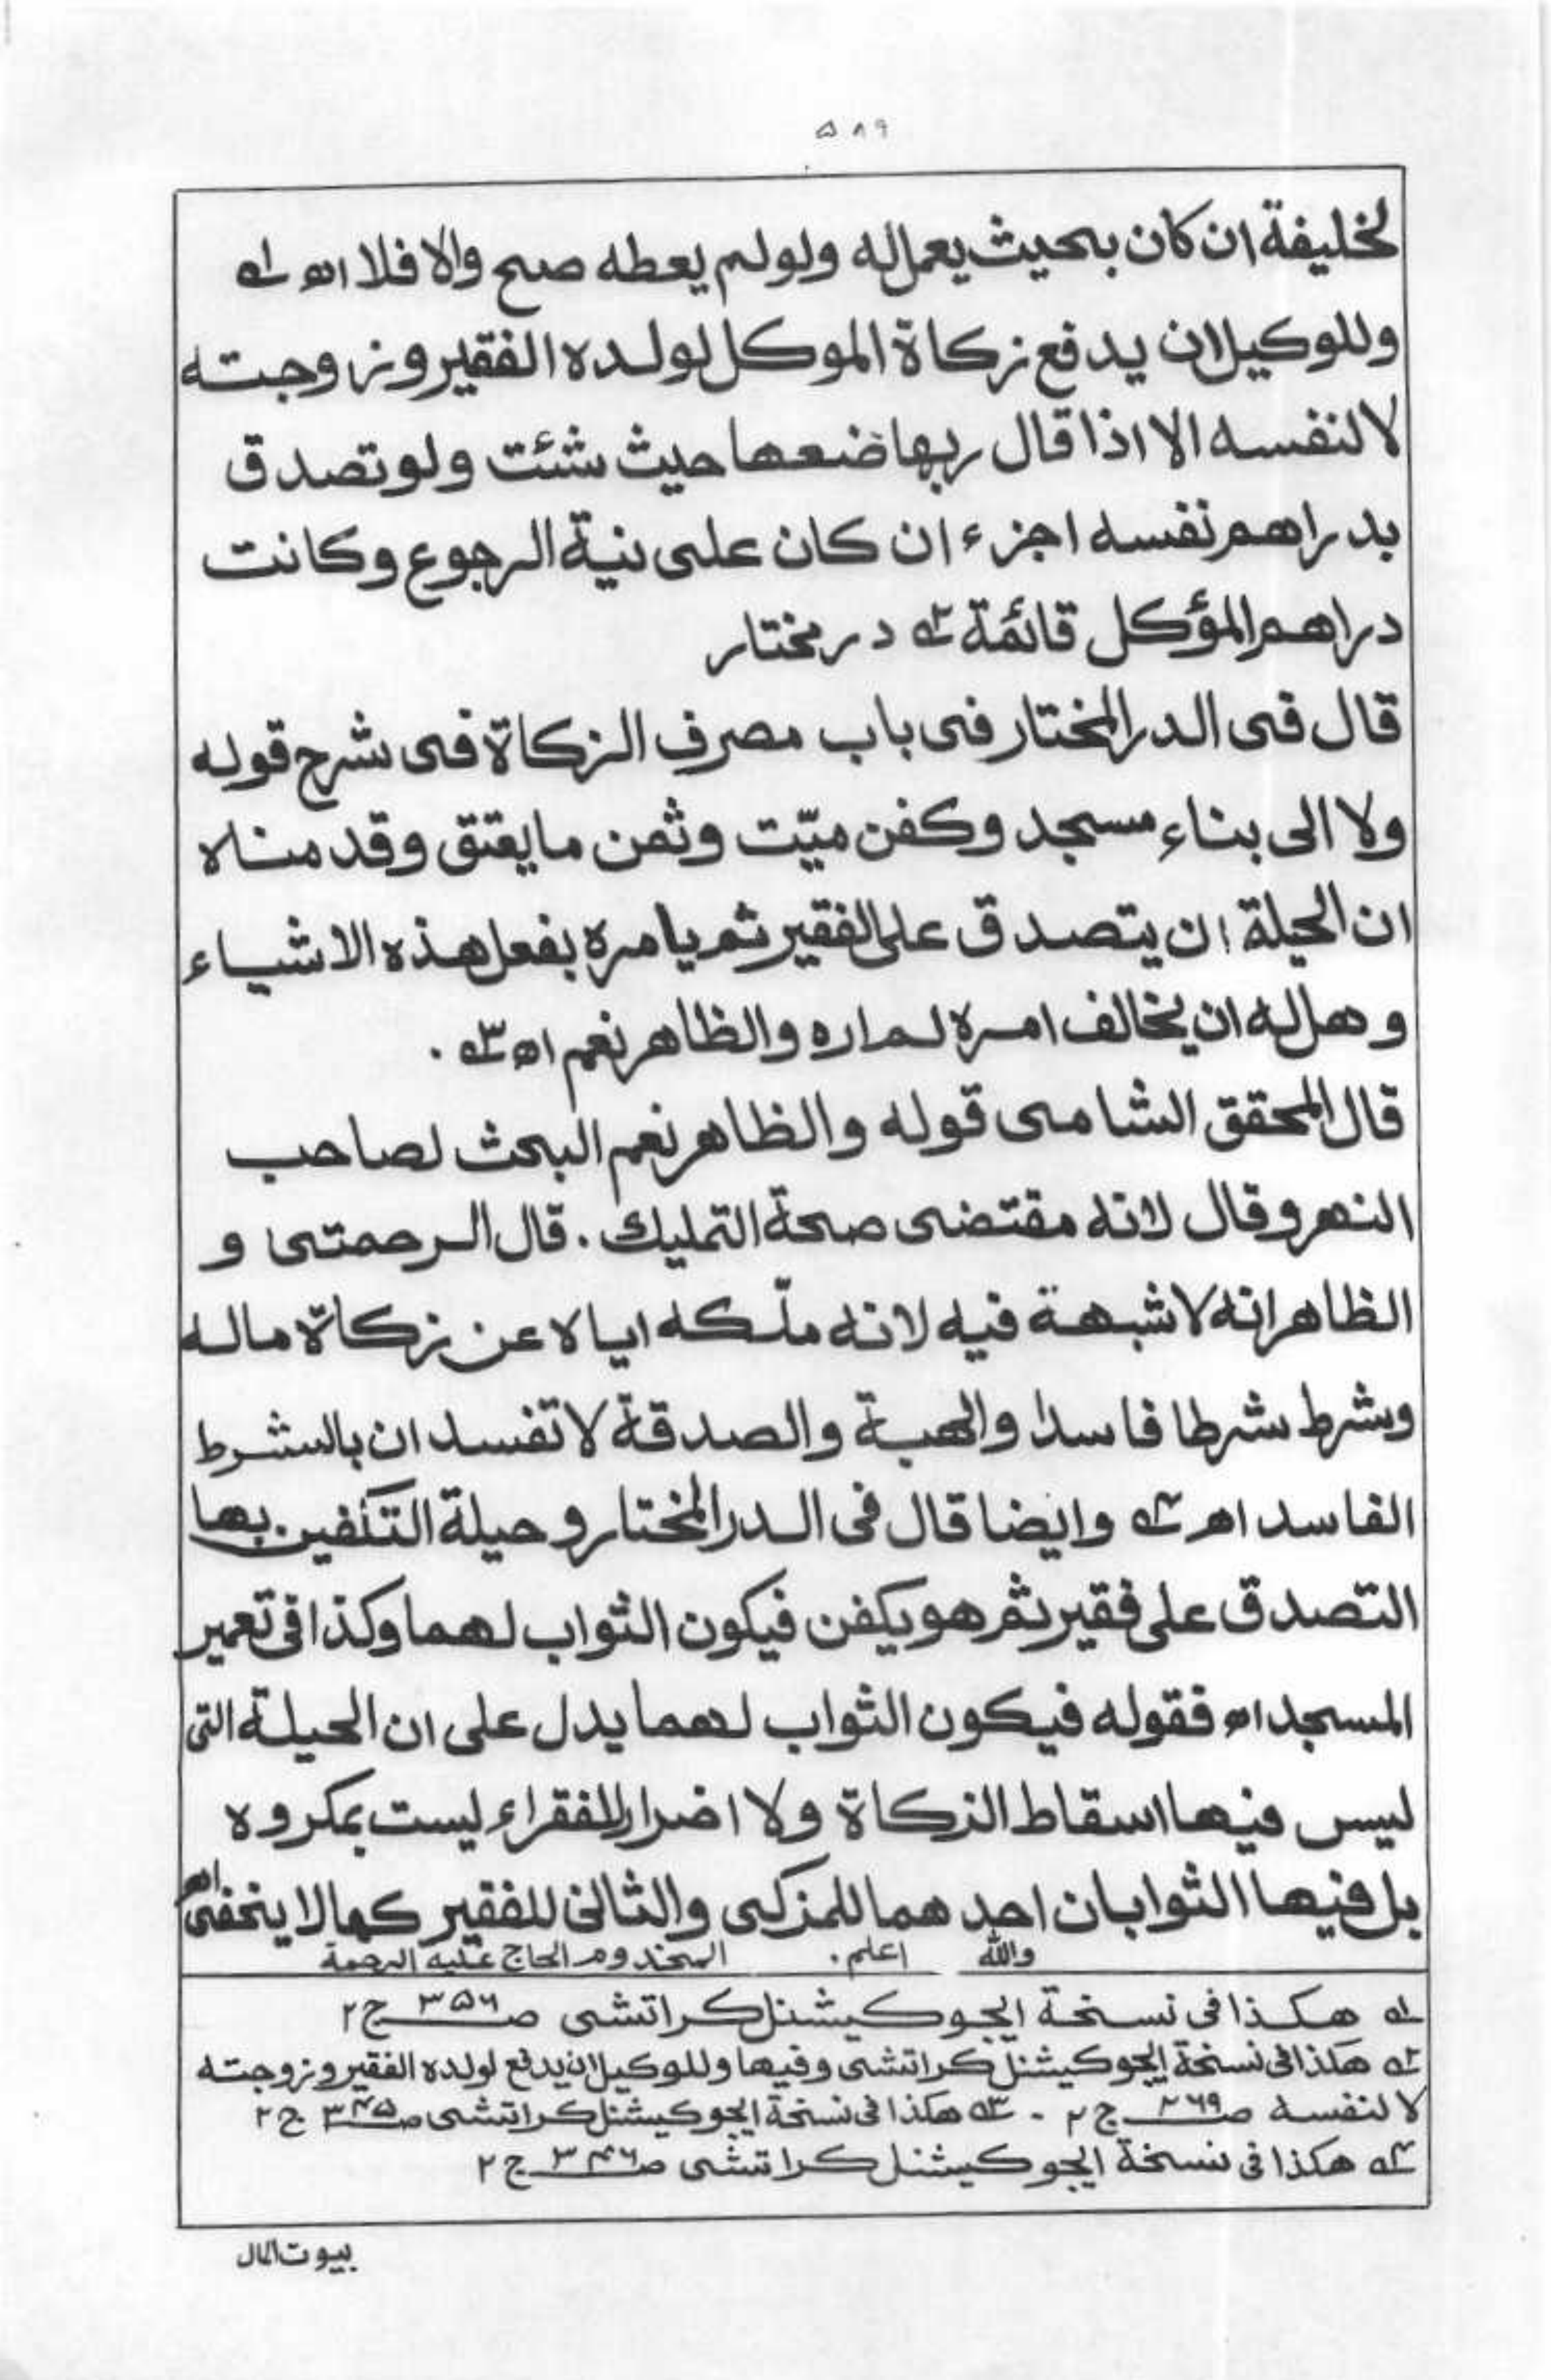 ۵۸۹
لخليفة ان كان بحيث يعمل له ولو لم يعطه صح والا فلا اھ ۱ے
وللوكيل ان يدفع زكاة الموكل لولده الفقير وزوجته
لا لنفسه الا اذا قال ربها ضعها حيث شئت ولو تصدق
بدراهم نفسه اجزء ان كان على نية الرجوع وكانت
دراهم المؤكل قائمة ۲ے درمختار
قال فى الدر المختار فى باب مصرف الزكاة فى شرح قوله
ولا الى بناء مسجد وكفن ميّت وثمن ما يعتق وقدمناه
ان الحيلة ان يتصدق على الفقير ثم يامره بفعل هذه الاشياء
وهل له ان يخالف امره لم اره والظاهر نعم اھ ۳ے .
قال المحقق الشامى قوله والظاهر نعم البحث لصاحب
النهر وقال لانه مقتضى صحة التمليك . قال الرحمتى و
الظاهر انه لا شبهة فيه لانه ملّكه اياه عن زكاة ماله
وشرط شرطا فاسدا والهبة والصدقة لا تفسدان بالشرط
الفاسد اھ ۴ے وايضا قال فى الدر المختار و حيلة التكفين بها
التصدق على فقير ثم هو يكفن فيكون الثواب لهما وكذا فى تعمير
المسجد اھ فقوله فيكون الثواب لهما يدل على ان الحيلة التى
ليس فيها اسقاط الزكاة ولا اضرار للفقراء ليست بمكروه
بل فيها الثوابان احدهما للمزكى والثانى للفقير كما لا يخفى اھ
والله اعلم . المخدوم الحاج عليه الرحمة
۱ے هكذا فى نسخة ايجوكيشنل كراتشى ص ۳۵۶ ج ۲
۲ے هكذا فى نسخة ايجوكيشنل كراتشى وفيها وللوكيل ان يدفع لولده الفقير وزوجته
لا لنفسه ص ۲۶۹ ج ۲ . ۳ے هكذا فى نسخة ايجوكيشنل كراتشى ص ۳۴۵ ج ۲
۴ے هكذا فى نسخة ايجوكيشنل كراتشى ص ۳۴۶ ج ۲
بيوت المال